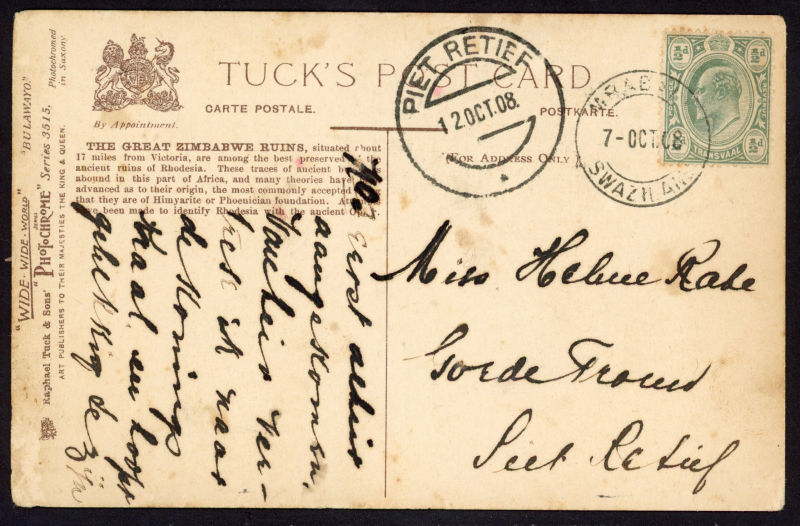 TUCK'S POST CARD
CARTE POSTALE.
POSTKARTE.
By Appointment.
(FOR ADDRESS ONLY
THE GREAT ZIMBABWE RUINS, situated about
17 miles from Victoria, are among the best preserved of the
ancient ruins of Rhodesia. These traces of ancient
abound in this part of Africa, and many theories have
advanced as to their origin, the most commonly accepted
that they are of Himyarite or Phoenician foundation.
been made to identify Rhodesia with the ancient
"WIDE-WIDE-WORLD" "BULAWAYO."
SERIES
Raphael Tuck & Sons' "PHOTOCHROME" Series 3515. Photochromed
in Saxony.
ART PUBLISHERS TO THEIR MAJESTIES THE KING & QUEEN.
PIET RETIEF
12 OCT. 08.
7-OCT.08
SWAZILAND
½d ½d
½d ½d
TRANSVAAL
eerst alhier
aangekomen,
Van hier ver-
ik naar
de Konings
Kraal en hoop
gelukkig te
zijn
Miss Helene Rabe
Goede Trouw
Piet Retief